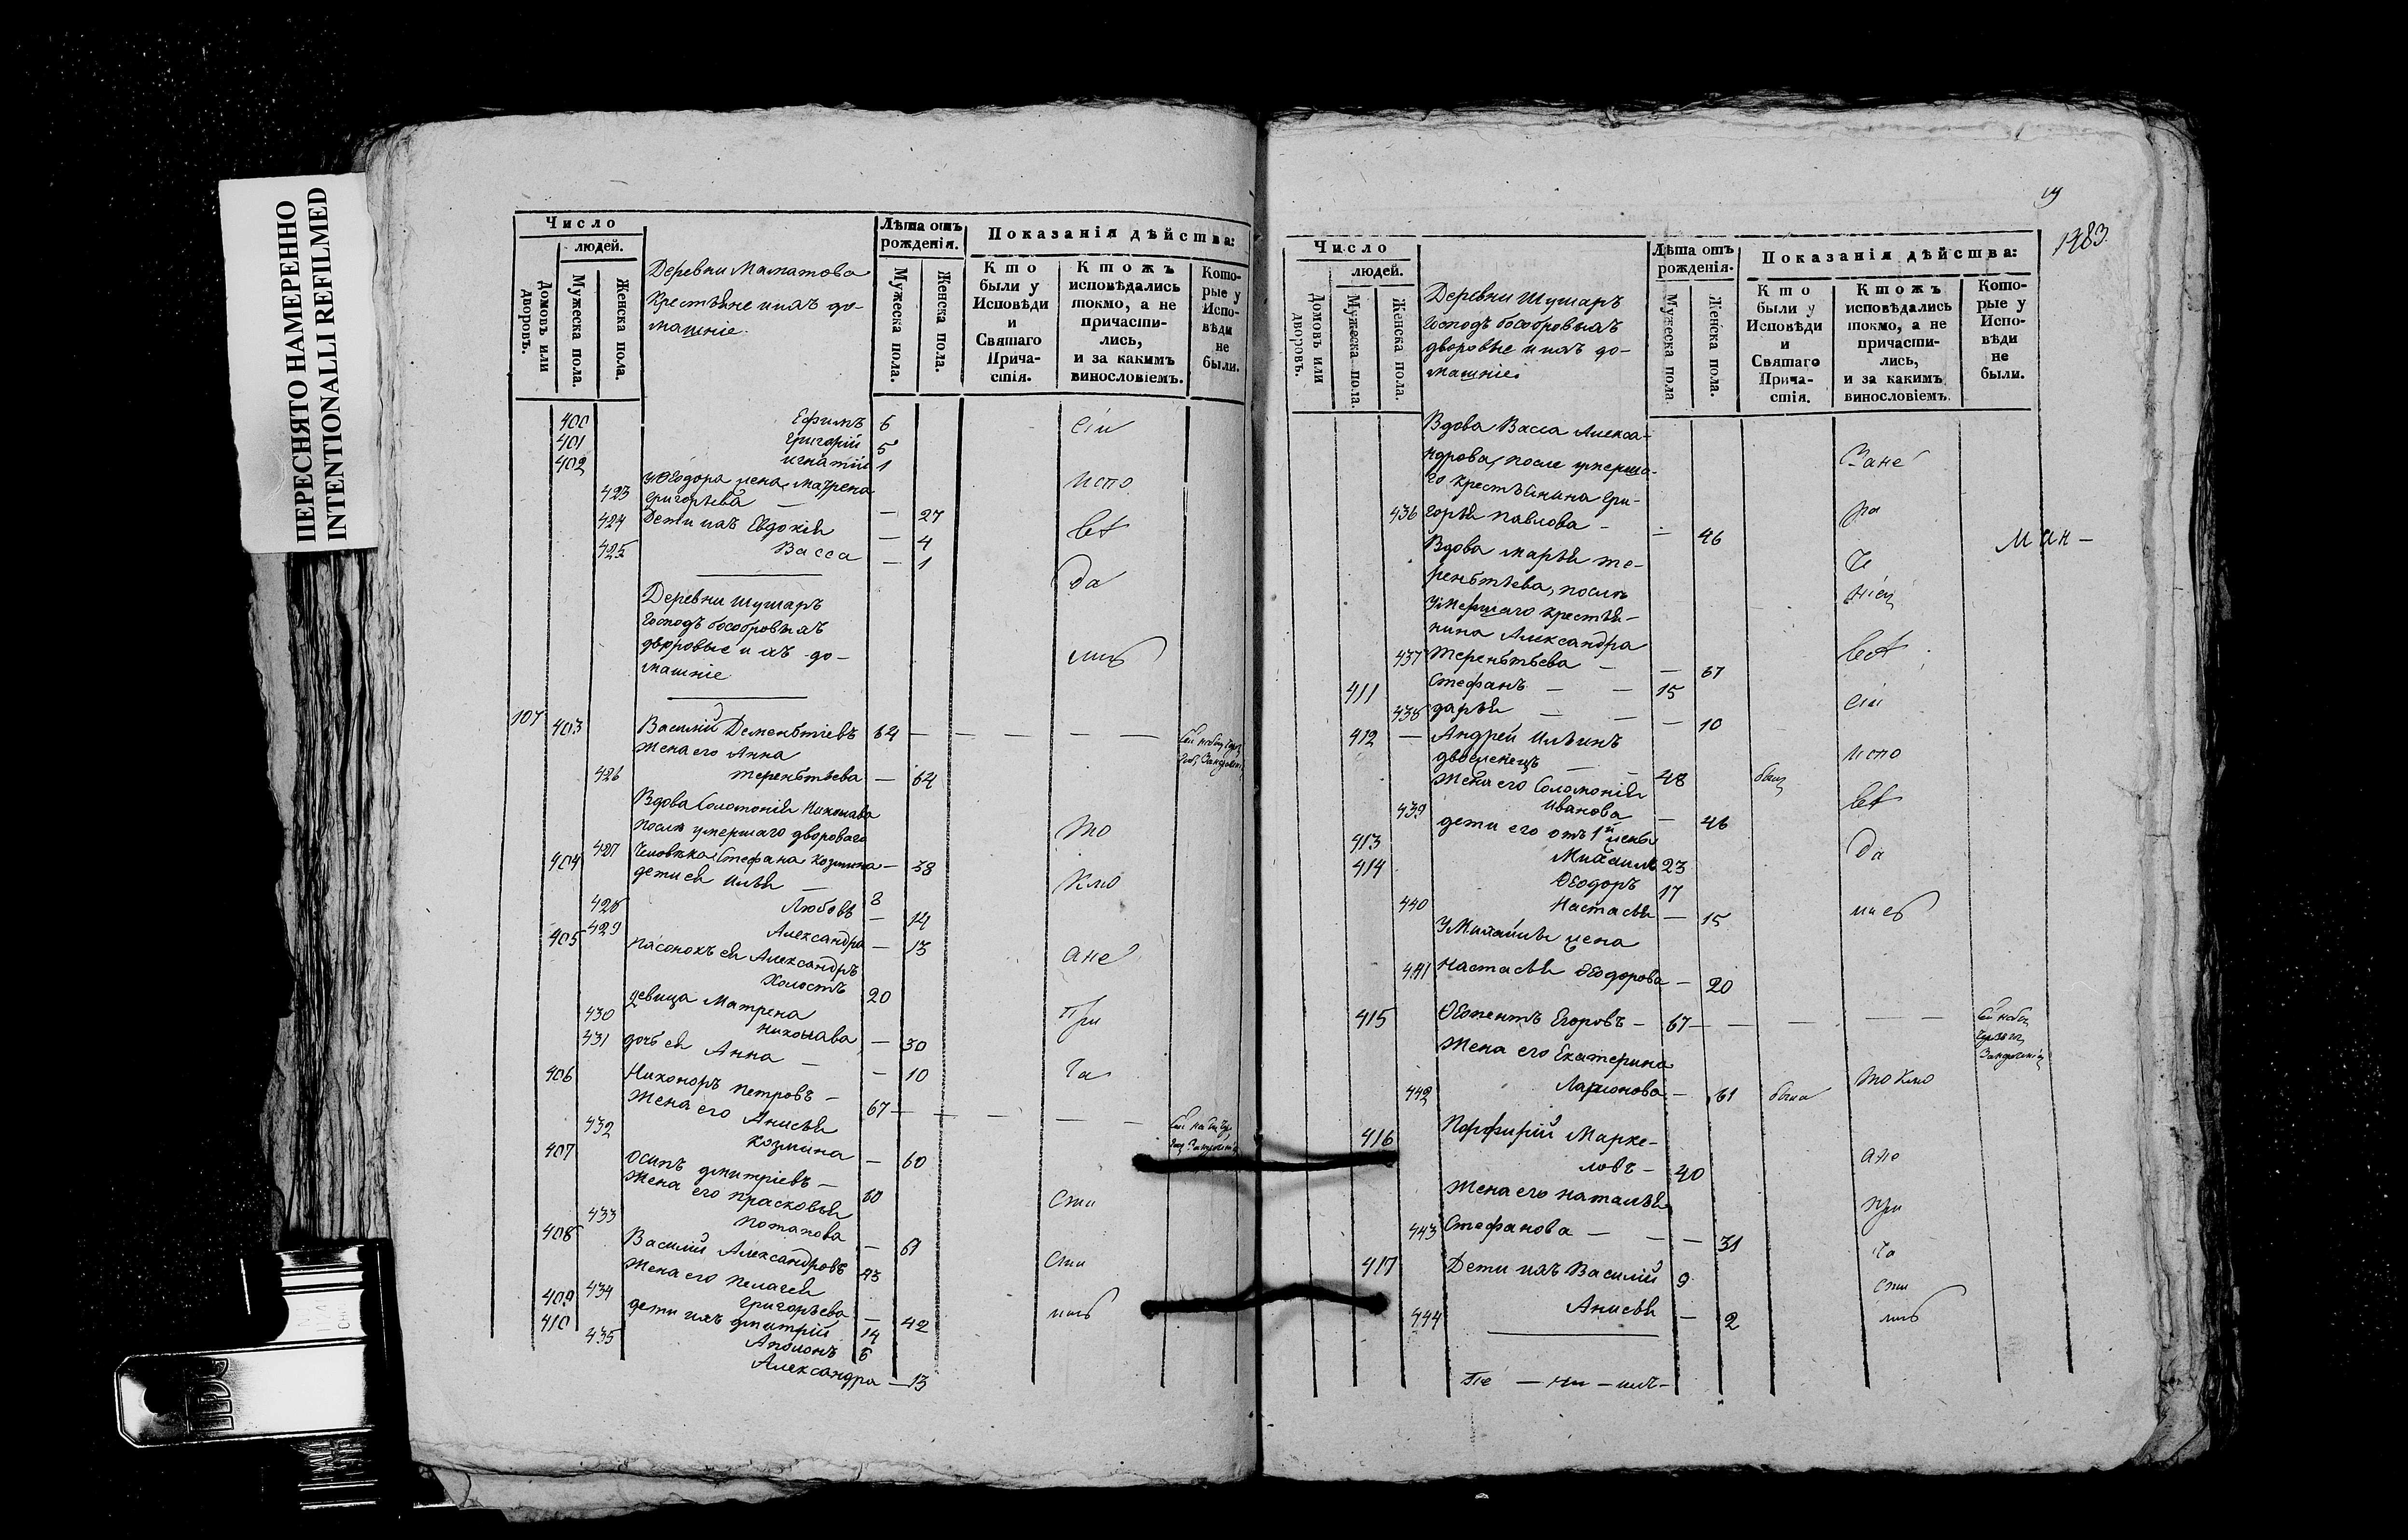 ПЕРЕСНЯТО НАМЕРЕННО
INTENTIONALLI REFILMED
Число
людей.
Домовъ или дворовъ.
Мужеска пола.
Женска пола.
Деревни Маматова
крестьяне и ихъ до-
машніе.
Лѣта отъ рожденія.
Мужеска пола.
Женска пола.
Показанія дѣйства:
Кто были у Исповѣди и Святаго Причастія.
Ктожъ исповѣдались токмо, а не причастились, и за какимъ винословіемъ.
Которые у Исповѣди не были.
400 Ефимъ 6 сіи
401 Григорій 5
402 Игнатій 1
У Ѳеодора жена Матрена испо
423 Григорьева — — 27
424 Дети ихъ Евдокія — 4 вѣ
425 Васса — 1
да
Деревни Шушаръ
Господъ
дворовые и ихъ до-
машніе
лись
107 403 Василій Дементьевъ 64 — — — — —
Жена его Анна
426 Терентьева — 64
Вдова Соломонія
После умершаго двороваго то
427 Человѣка Стефана Козмина — 38
404 дети ея Илья — 8 кмо
428 Любовь — 14
429 Александра — 13
405 пасонокъ ея Александръ ане
Холостъ 20
девица Матрена при
430 — 30
431 дочь ея Анна — — 10 ча
406 Никоноръ Петровъ — 67 — — — — —
Жена его Анисья
432 Козмина — 60
407 Осипъ Дмитріевъ — 60
Жена его Прасковья сти
433 Потапова — 61
408 Василій Александровъ 43 сти
Жена его Пелагея
434 Григорьева — 42
409 дети ихъ Дмитрій 14 лись
410 6
435 Александра — 13
1483.
Число
людей.
Домовъ или дворовъ.
Мужеска пола.
Женска пола.
Деревни Шушаръ
Господъ
дворовые и ихъ до-
машніе
Лѣта отъ рожденія.
Мужеска пола.
Женска пола.
Показанія дѣйства:
Кто были у Исповѣди и Святаго Причастія.
Ктожъ исповѣдались токмо, а не причастились, и за какимъ винословіемъ.
Которые у Исповѣди не были.
Вдова Васса Алекса-
ндрова, после умерша- Зане
го крестьянина Гри-
436 горья Павлова — — 46
Вдова Марья Те-
рентьева, после
умершаго крестья-
нина Александра
437 Терентьева — — 67
411 Стефанъ — — 15
438 Дарья — — — 10 сіи
412 — Андрей Ильинъ испо
двоеженецъ — — 48
Жена его Соломонія вѣ
439 Иванова — 46
дети его отъ 1й жены
413 Михаилъ 23 да
414 Ѳеодоръ 17
440 Настасья — 15
У Михайлы жена
441 Настасья Ѳеодорова — 20
415 Егоровъ — 67 — — — — —
Жена его Екатерина
442 Ларионова — 61 была токмо
416 Порфирій Марке-
ловъ — 40 ане
Жена его Наталья при
443 Стефанова — — — 31 ча
417 Дети ихъ Василій 9 сти
444 Анисья — 2 лись